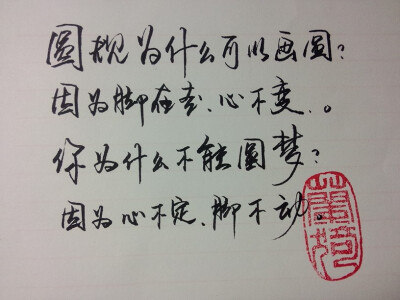 圆规为什么可以画圆？
因为脚在走、心不变。
你为什么不能圆梦？
因为心不定、脚不动。